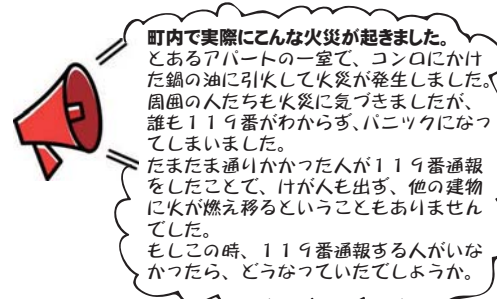 町内で実際にこんな火災が起きました。
とあるアパートの一室で、コンロにかけ
た鍋の油に引火して火災が発生しました。
周囲の人たちも火災に気づきましたが、
誰も１１９番がわからず、パニックになっ
てしまいました。
たまたま通りかかった人が１１９番通報
をしたことで、けが人も出ず、他の建物
に火が燃え移るということもありません
でした。
もしこの時、１１９番通報する人がいな
かったら、どうなっていたでしょうか。